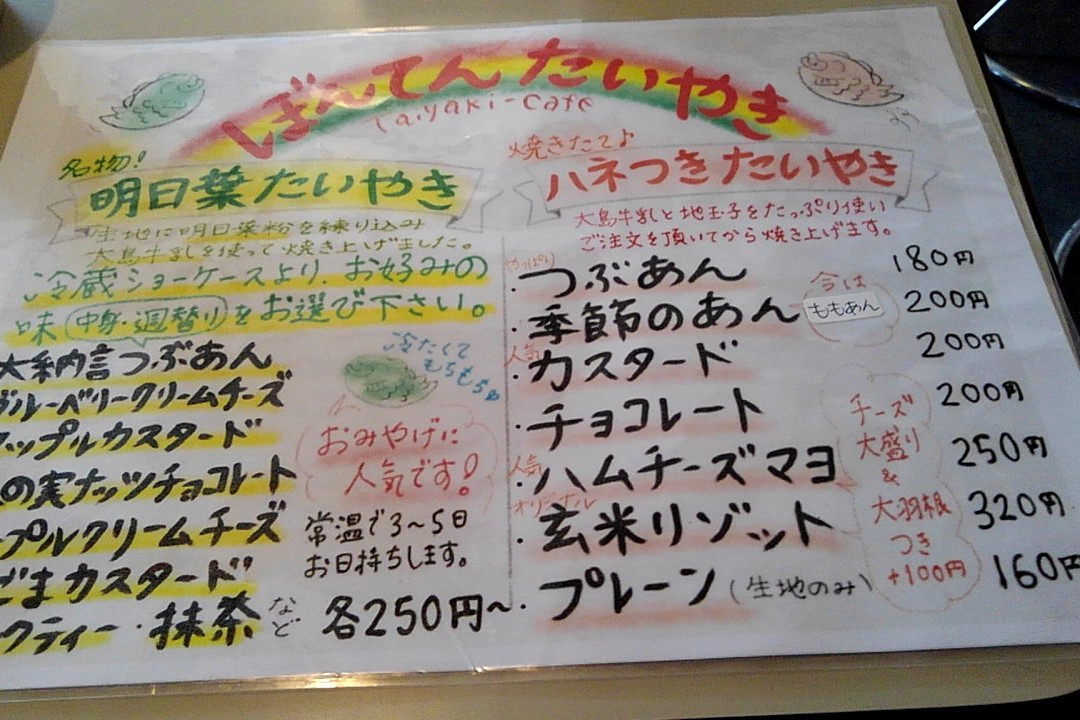 ぼんてん たいやき
taiyaki-cafe
名物!
明日葉たいやき
生地に明日葉粉を練り込み
大島牛乳を使って焼き上げました。
冷蔵ショーケースより、お好みの
味(中身・週替り)をお選び下さい。
大納言つぶあん
ブルーベリークリームチーズ
アップルカスタード
の実ナッツチョコレート
プルクリームチーズ
ごまカスタード
クティー・抹茶 など
冷たくて
もちもち
おみやげに
人気です!
常温で3~5日
お日持ちします。
各250円~
焼きたて♪
ハネつきたいやき
大島牛乳と地玉子をたっぷり使い
ご注文を頂いてから焼き上げます。
やっぱり
・つぶあん 180円
・季節のあん 今は ももあん 200円
人気
・カスタード 200円
・チョコレート 200円
人気
・ハムチーズマヨ 250円
オリジナル
・玄米リゾット 320円
・プレーン(生地のみ) 160円
チーズ
大盛り
&
大羽根
つき
+100円